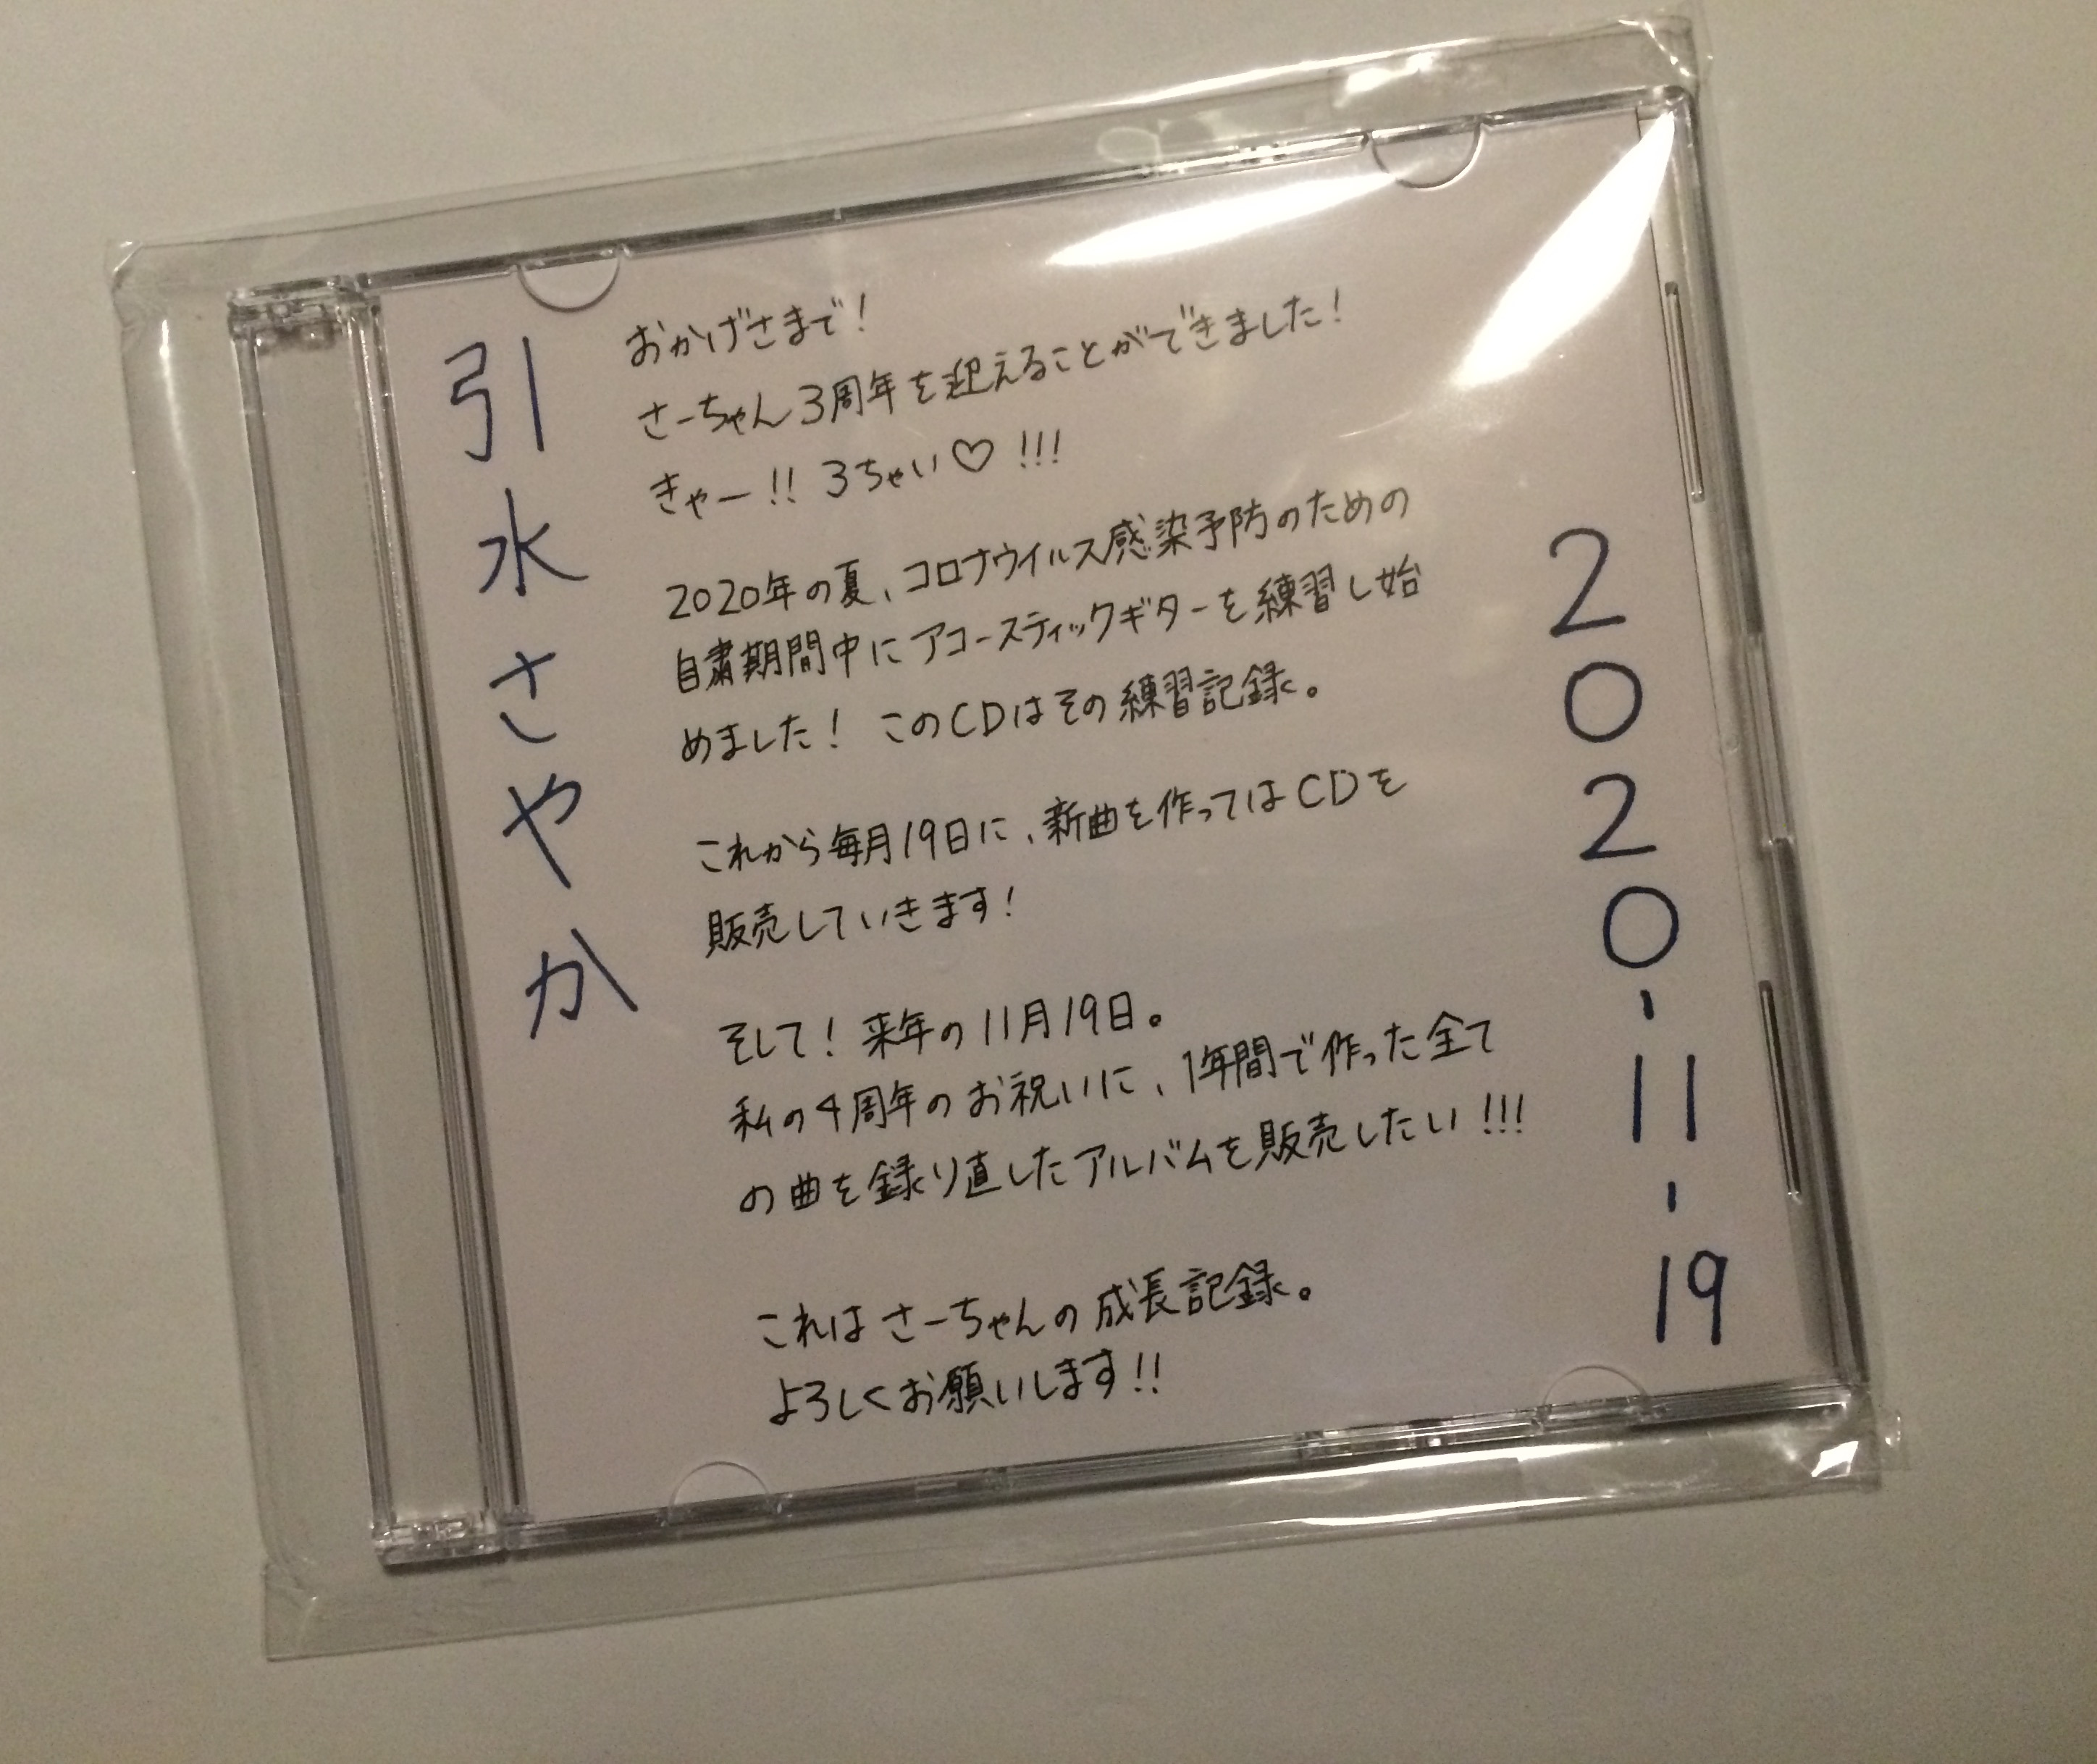 引水さやか
おかげさまで!
さーちゃん3周年を迎えることができました!
きゃー!! 3ちゃい♡!!!
2020年の夏、コロナウイルス感染予防のための
自粛期間中にアコースティックギターを練習し始
めました! このCDはその練習記録。
これから毎月19日に、新曲を作ってはCDを
販売していきます!
そして! 来年の11月19日。
私の4周年のお祝いに、1年間で作った全て
の曲を録り直したアルバムを販売したい!!!
これはさーちゃんの成長記録。
よろしくお願いします!!
2020-11-19